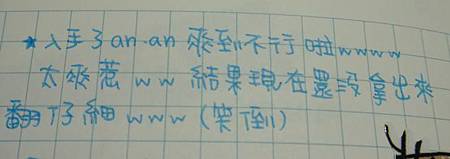 ★入手了an·an 飛到不行啦wwww
太飛惹ww 結果現在還沒拿出來
翻仔細www (笑倒)